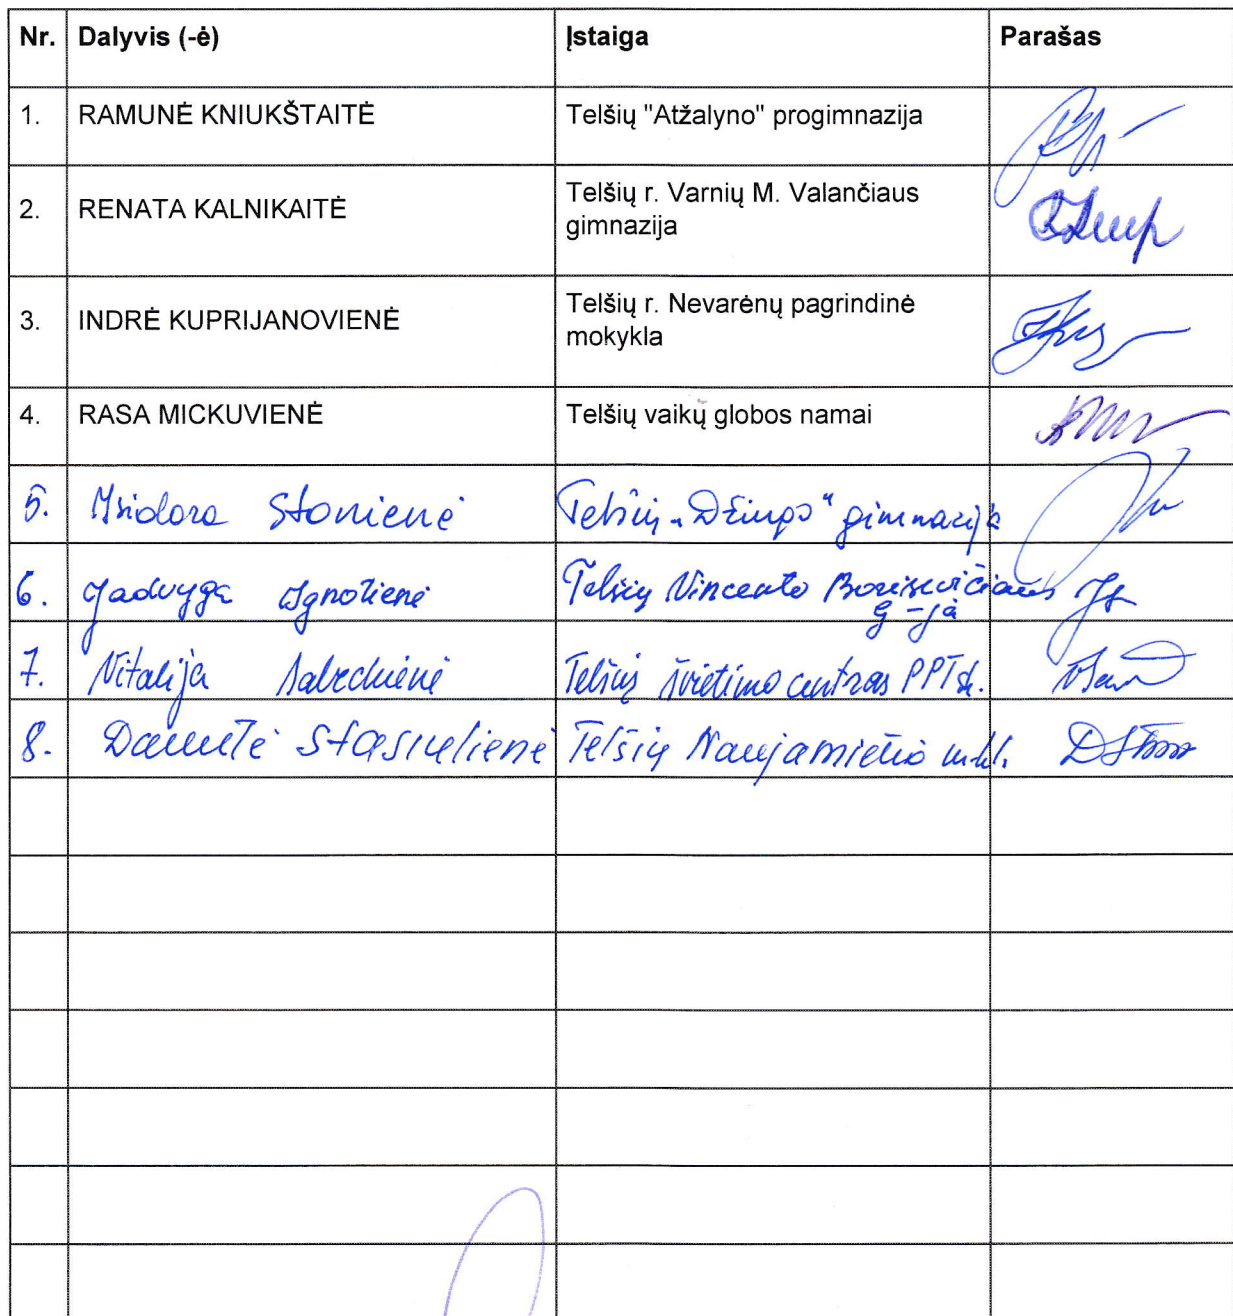 Nr. Dalyvis (-ė) Įstaiga Parašas
1. RAMUNĖ KNIUKŠTAITĖ Telšių "Atžalyno" progimnazija
2. RENATA KALNIKAITĖ Telšių r. Varnių M. Valančiaus
gimnazija
3. INDRĖ KUPRIJANOVIENĖ Telšių r. Nevarėnų pagrindinė
mokykla
4. RASA MICKUVIENĖ Telšių vaikų globos namai
5. Isidora Stonienė Telšių „Džiugo“ gimnazija
6. Jadvyga Ignotienė Telšių Vincento Borisevičiaus
g-ja
7. Vitalija Telšių švietimo centras PPT sk.
8. Danutė Stasiulienė Telšių Naujamiesčio mkl.